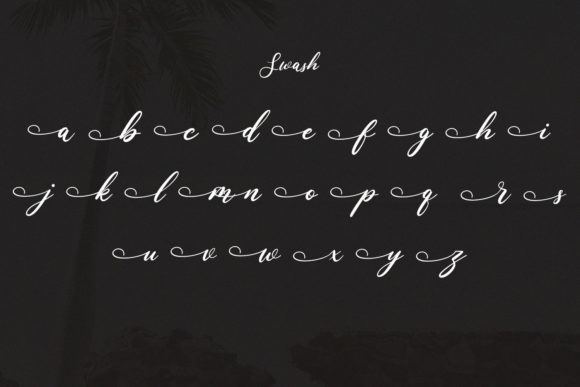 Swash
a b c d e f g h i
j k l m n o p q r s
u v w x y z